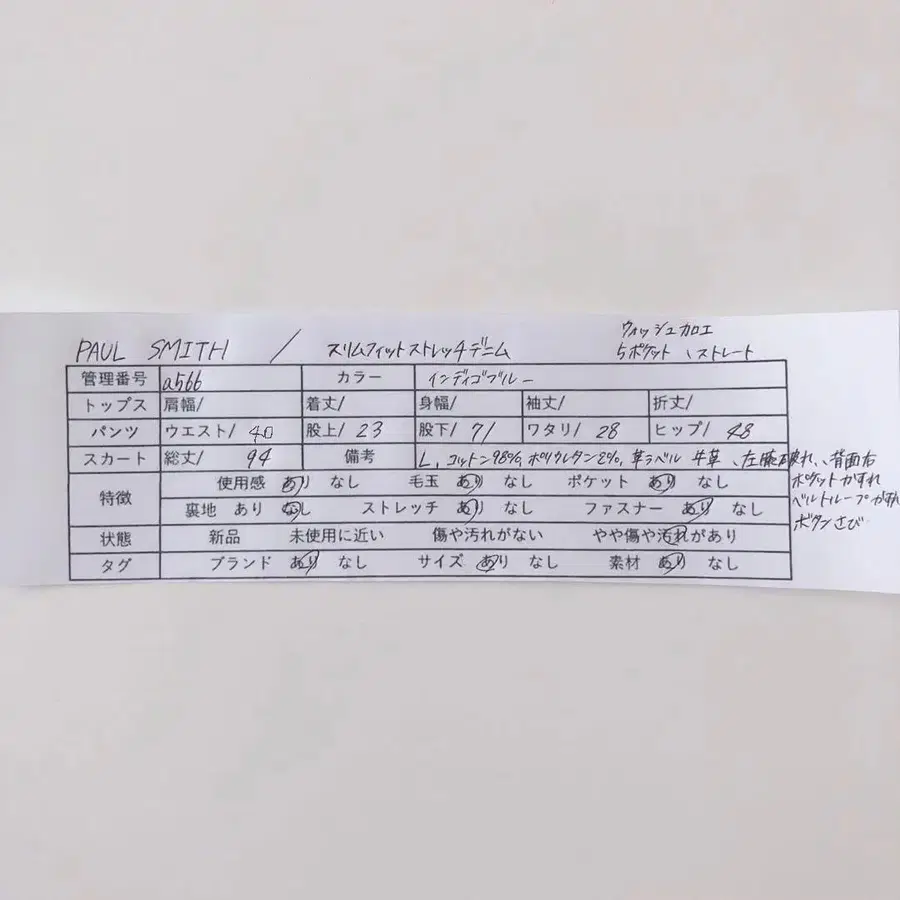 ウォッシュカロエ
PAUL SMITH / スリムフィットストレッチデニム 5ポケット、ストレート
管理番号 a566 カラー インディゴブルー
トップス 肩幅/ 着丈/ 身幅/ 袖丈/ 折丈/
パンツ ウエスト/ 40 股上/ 23 股下/ 71 ワタリ/ 28 ヒップ/ 48
スカート 総丈/ 94 備考 L、コットン98%、ポリウレタン2%、革ラベル 牛革、左膝破れ、背面右
ポケットかすれ
ベルトループかすれ
ボタンさび
特徴 使用感 あり なし 毛玉 あり なし ポケット あり なし
裏地 あり なし ストレッチ あり なし ファスナー あり なし
状態 新品 未使用に近い 傷や汚れがない やや傷や汚れがあり
タグ ブランド あり なし サイズ あり なし 素材 あり なし